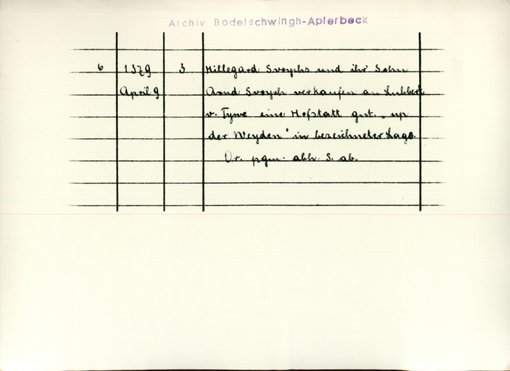 Archiv Bodelschwingh-Apferbeck
6 1379 3 Hillegard Svoychs und ihr Sohn
April 9 Arnd Svoych verkaufen an Lubbert
v. Tyne eine Hofstatt gnt. „up
der Weyden" in bezeichneter Lage
Or. pgm. abh. S. ab.